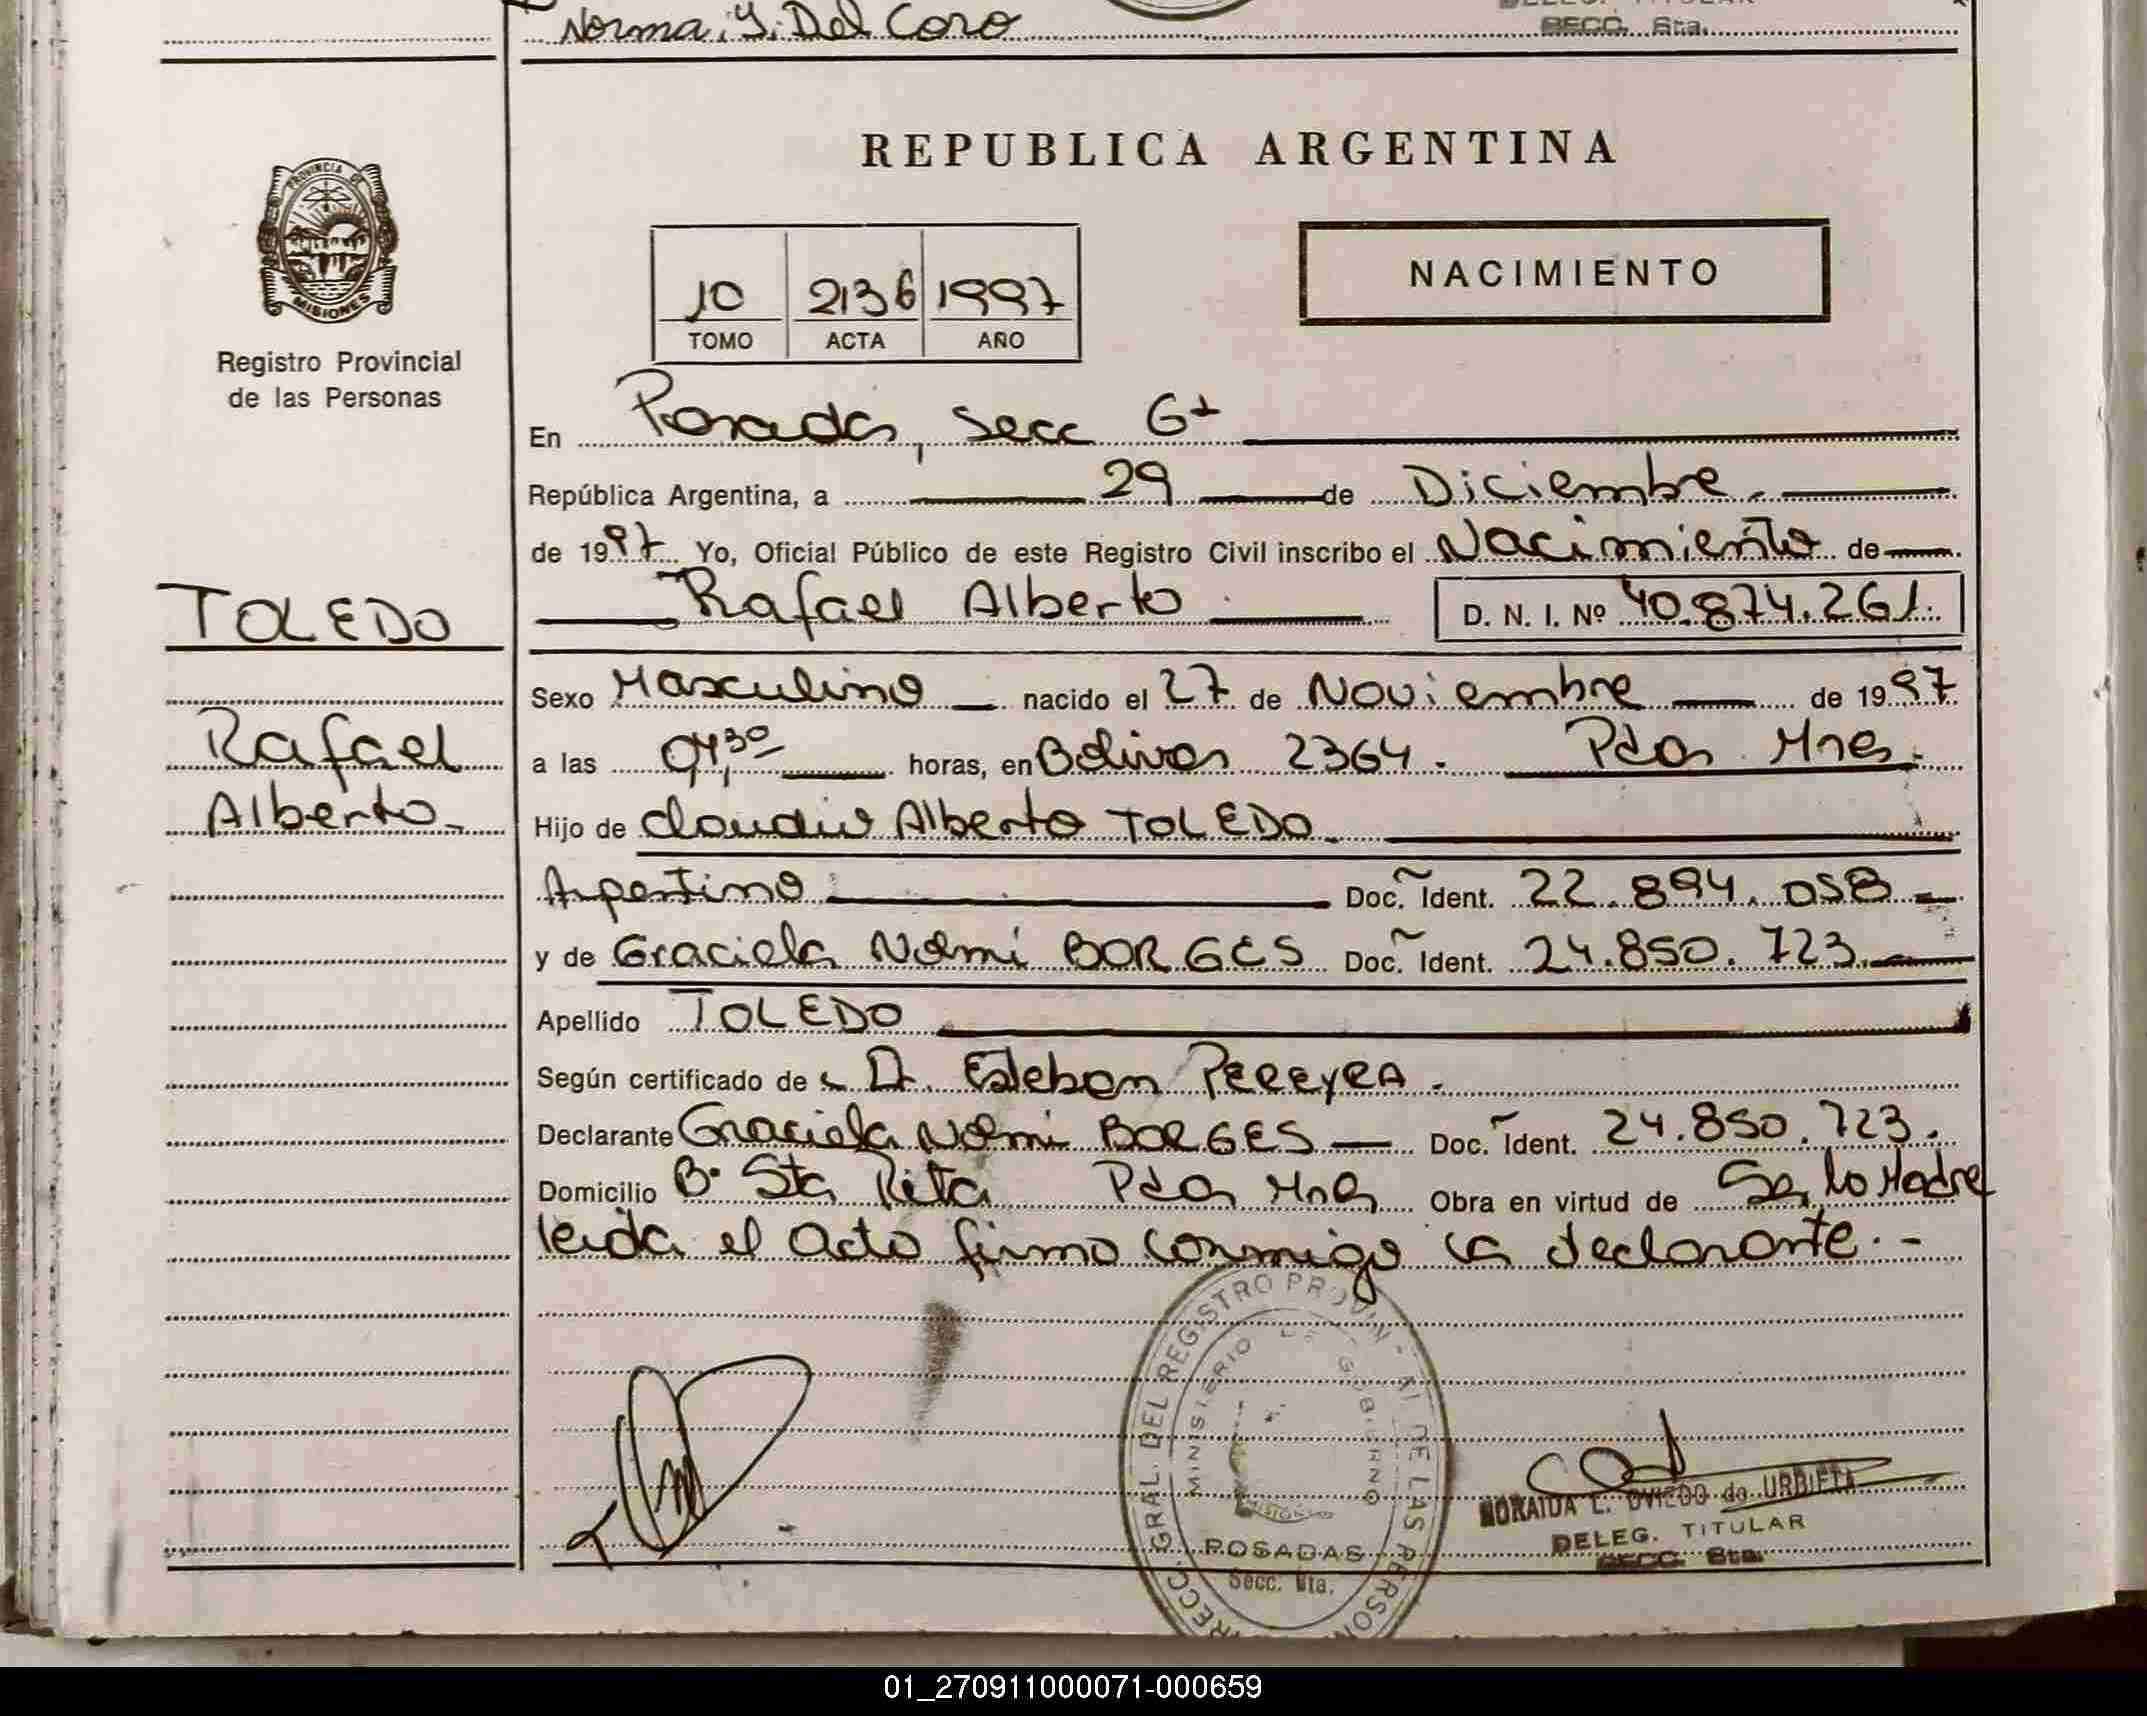 Norma. Y. Del Coro
SECC. 6ta.
REPUBLICA ARGENTINA
PROVINCIA DE
MISIONES
Registro Provincial
de las Personas
NACIMIENTO
10 2136 1997
TOMO ACTA AÑO
En Posadas, Secc 6ta
República Argentina, a 29 de Diciembre.
de 1997 Yo, Oficial Público de este Registro Civil inscribo el Nacimiento de
TOLEDO
Rafael Alberto D. N. I. Nº 40.874.261.
Sexo Masculino nacido el 27 de Noviembre de 1997
Rafael
a las 04,30 horas, en Bolivar 2364. Pdas Mnes.
Alberto
Hijo de Claudio Alberto TOLEDO
Argentino Doc. Ident. 22.894.058
y de Graciela Noemi BORGES Doc. Ident. 24.850.723
Apellido TOLEDO
Según certificado de Dr. Esteban PEREYRA.
Declarante Graciela Noemi BORGES Doc. Ident. 24.850.723.
Domicilio Bº Sta Rita Pdas Mnes Obra en virtud de Ser la Madre
leida el acta firma conmigo la declarante.-
DIRECC. GRAL. DEL REGISTRO PROVIN DE LAS PERSON
MINISTERIO DE GOBIERNO
POSADAS
Secc. 6ta.
NORAIDA L. OVIEDO de URBIETA
DELEG. TITULAR
SECC. 6ta.
01_270911000071-000659